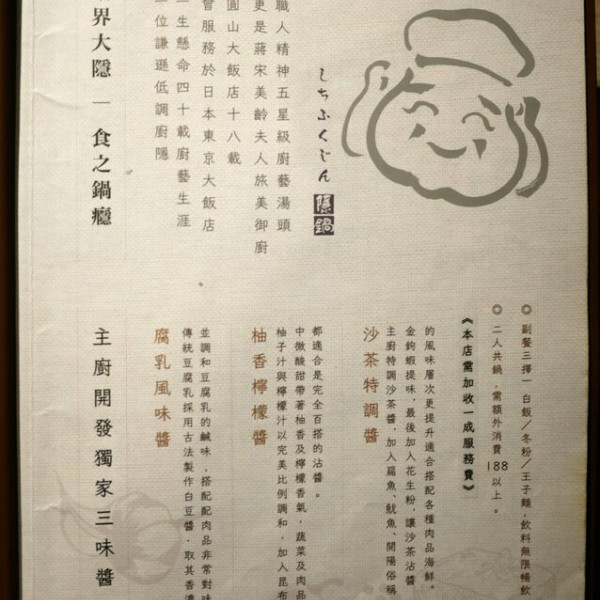 職人精神五星級廚藝湯頭
更是蔣宋美齡夫人旅美御廚
圓山大飯店十八載
曾服務於日本東京大飯店
一生懸命四十載廚藝生涯
一位謙遜低調廚隱
界大隱 一 食之鍋癮
しちふくじん
隱鍋
◎ 副餐三擇一 白飯／冬粉／王子麵，飲料無限暢飲
◎ 二人共鍋，需額外消費 188 以上。
《本店需加收一成服務費》
沙茶特調醬
主廚特調沙茶醬，加入扁魚、魷魚、開陽俗稱
金鉤蝦提味，最後加入花生粉，讓沙茶沾醬
的風味層次更提升適合搭配各種肉品海鮮。
柚香檸檬醬
柚子汁與檸檬汁以完美比例調和，加入昆布
中微酸甜帶著柚香及檸檬香氣，蔬菜及肉品
都適合是完全百搭的沾醬。
腐乳風味醬
傳統豆腐乳採用古法製作白豆醬，取其香濃
並調和豆腐乳的鹹味，搭配配肉品非常對味
主廚開發獨家三味醬